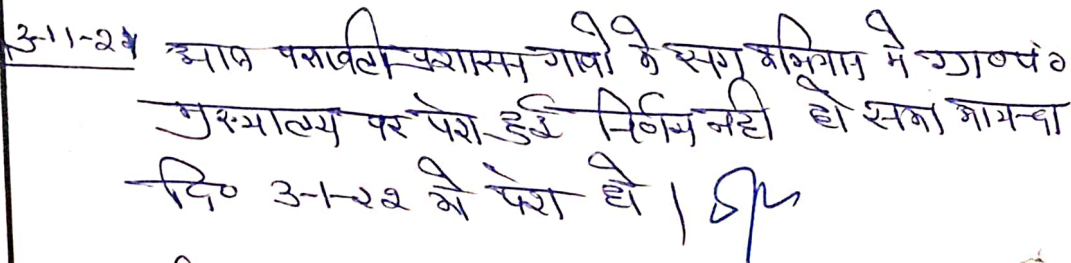 3-11-21 आज पत्रावली प्रशासन गावों के संग अभियान मे ग्रा० पं०
मुख्यालय पर पेश हुई निर्णय नही हो सका आयन्दा
दि० 3-1-22 को पेश हो |